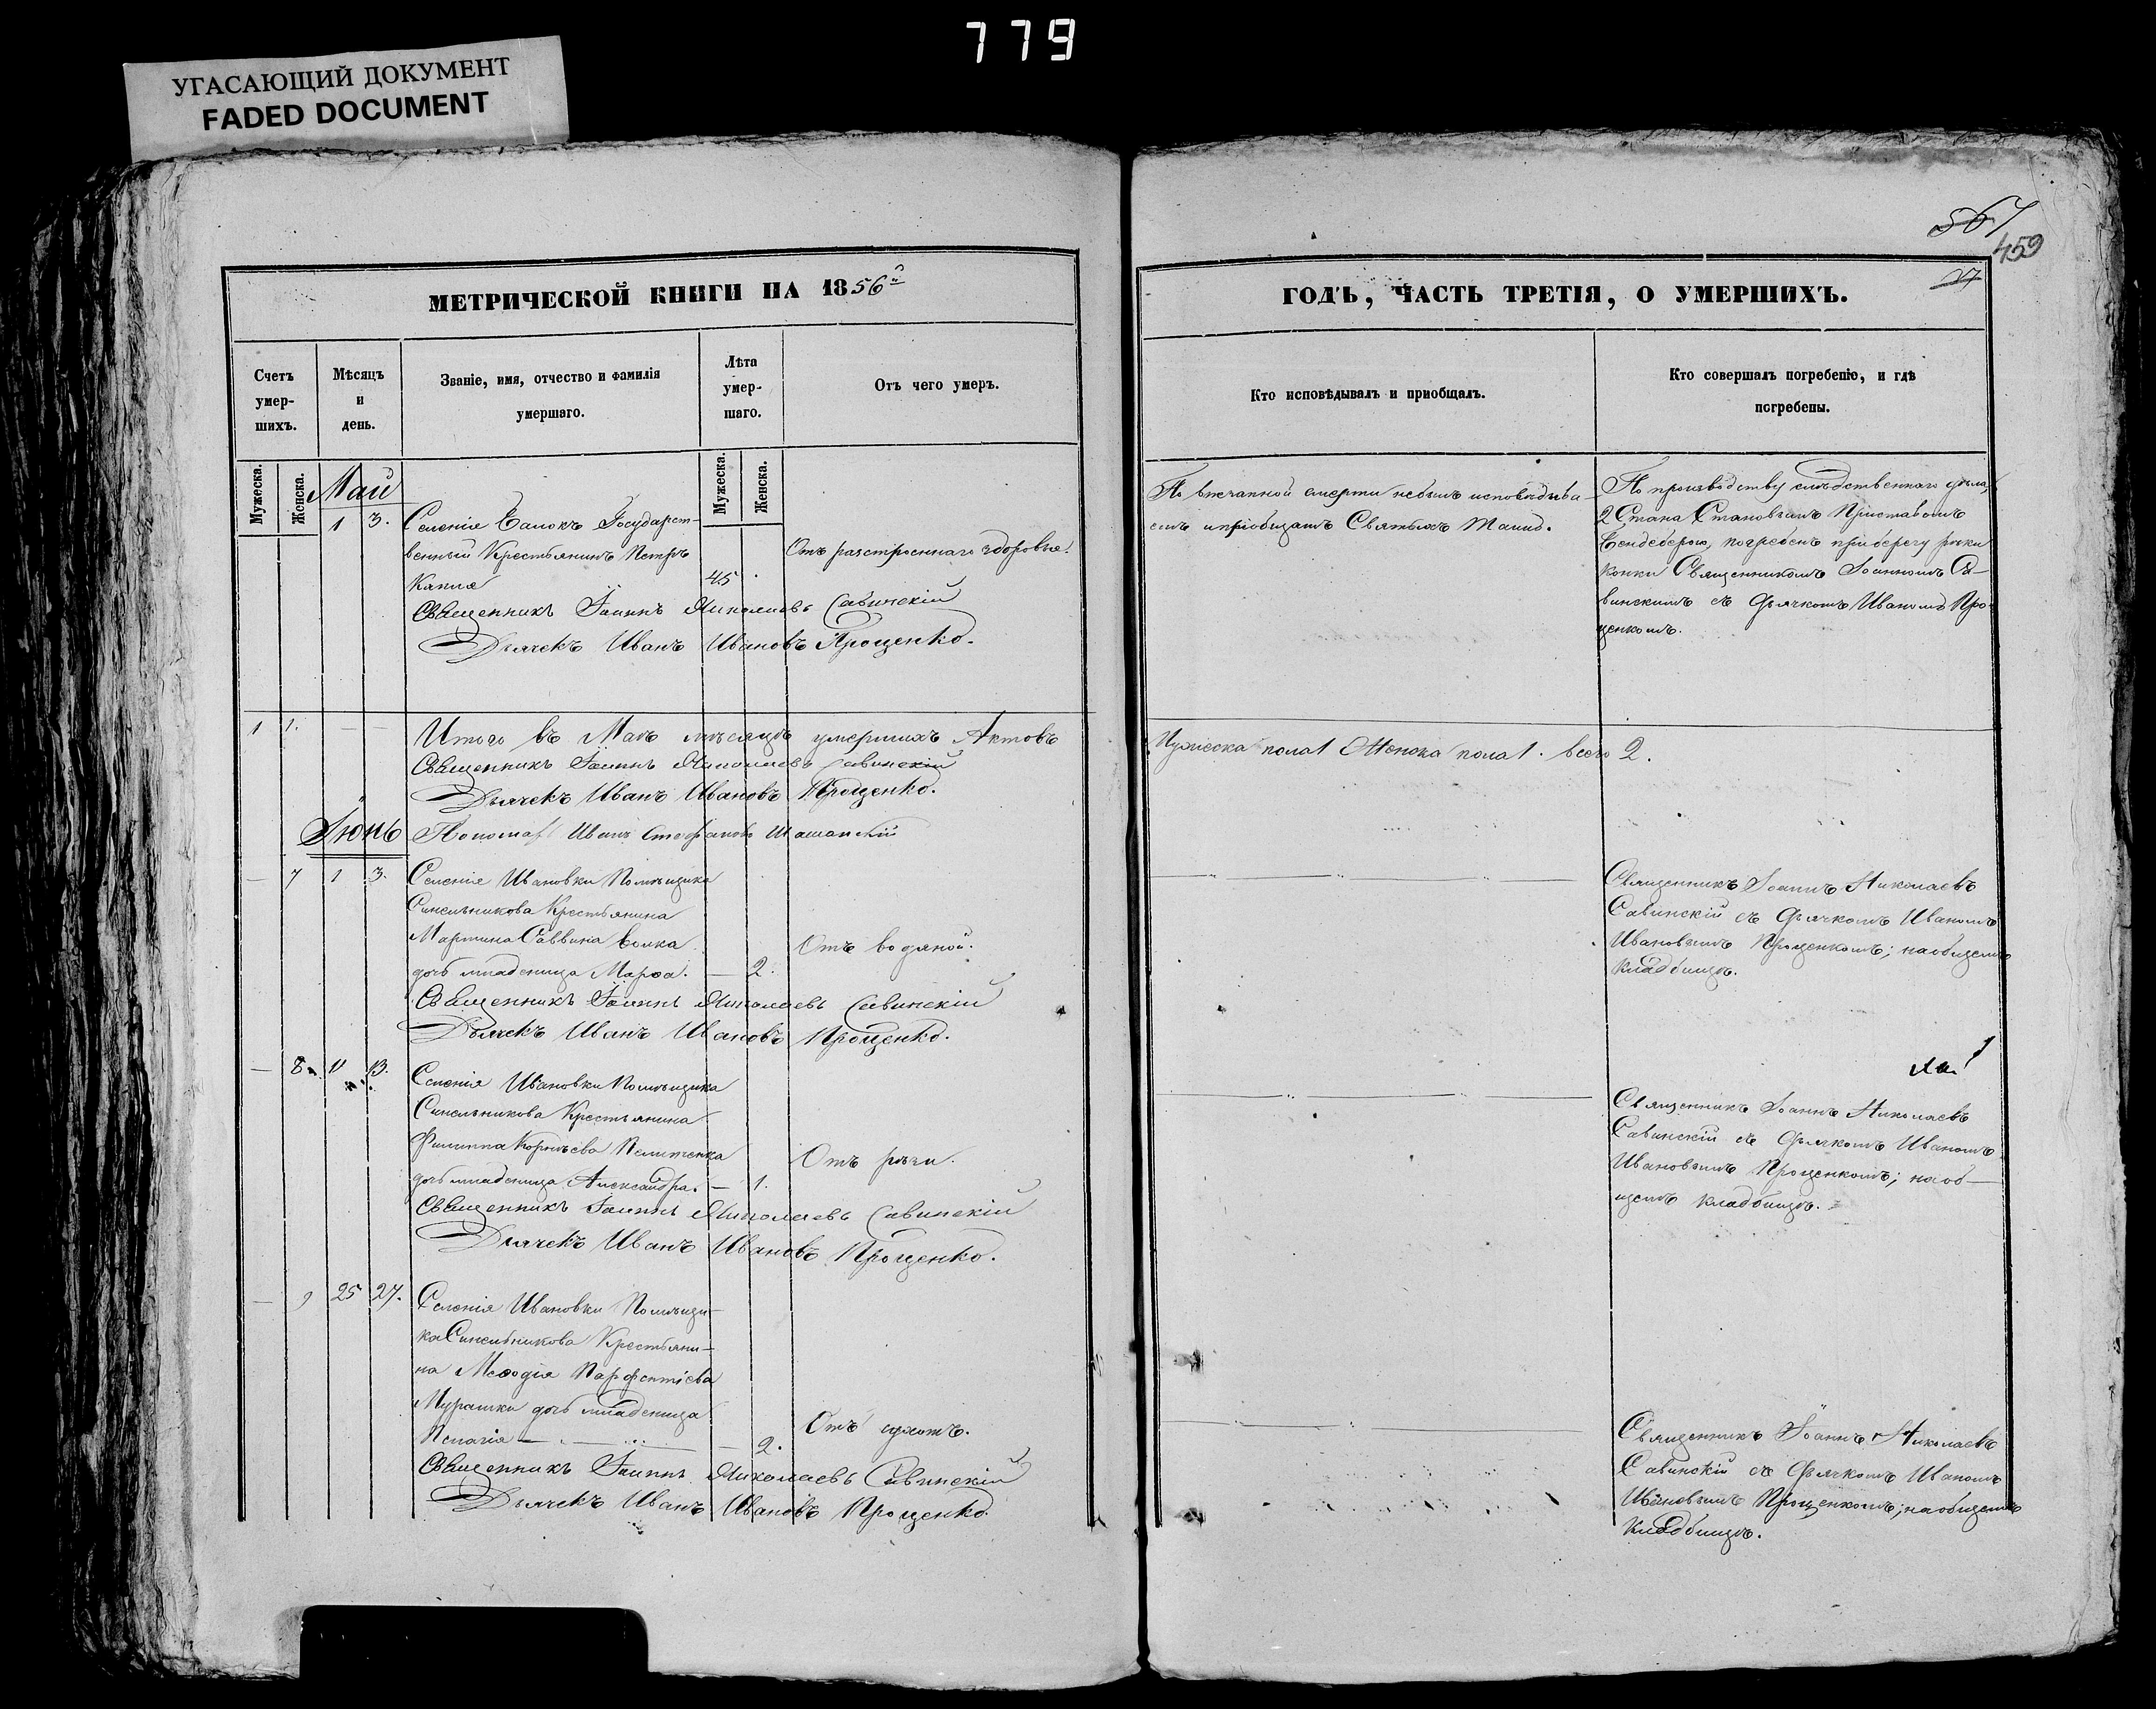 779
УГАСАЮЩИЙ ДОКУМЕНТ
FADED DOCUMENT
567
459
27
МЕТРИЧЕСКОЙ КНИГИ НА 1856й
Счетъ умер-шихъ.
Мѣсяцъ и день.
Званіе, имя, отчество и фамилія умершаго.
Лѣта умер-шаго.
Отъ чего умеръ.
Мужеска.
Женска.
Мужеска.
Женска.
Май
1 3. Селенія Балокъ Государст-
венный Крестьянинъ Петръ
Отъ разстроеннаго здоровья.
45
Священникъ Іоаннъ Николаевъ Савинскій
Дьячекъ Иванъ Ивановъ Прощенко.
1 1. Итого въ Маѣ мѣсяцѣ умершихъ Актовъ
Священникъ Іоаннъ Николаевъ Савинскій
Дьячекъ Иванъ Ивановъ Прощенко.
Іюнь
Пономарь Иванъ Стефановъ
7 1 3. Селенія Ивановки Помѣщика
Синельникова Крестьянина
Мартина Саввина Волка
Отъ водяной.
дочь младеница Марѳа. — 2.
Священникъ Іоаннъ Николаевъ Савинскій
Дьячекъ Иванъ Ивановъ Прощенко.
8 11 13. Селенія Ивановки Помѣщика
Синельникова Крестьянина
Филиппа Корнѣева
Отъ рѣзи.
дочь младеница Александра. — 1.
Священникъ Іоаннъ Николаевъ Савинскій
Дьячекъ Иванъ Ивановъ Прощенко.
9 25 27. Селенія Ивановки Помѣщи-
ка Синельникова Крестьяни-
на Меѳодія Парфентіева
Мурашки дочь младеница
Отъ сухотъ.
Пелагія — 2.
Священникъ Іоаннъ Николаевъ Савинскій
Дьячекъ Иванъ Ивановъ Прощенко.
ГОДЪ, ЧАСТЬ ТРЕТІЯ, О УМЕРШИХЪ.
Кто исповѣдывалъ и пріобщалъ.
Кто совершалъ погребеніе, и гдѣ погребены.
По внезапной смерти небылъ исповѣдыва-
емъ и пріобщаемъ Святыхъ Таинъ.
По производству слѣдственнаго дѣла,
2 Стана Становымъ Приставомъ
погребенъ при берегу рѣки
Конки Священникомъ Іоанномъ Са-
винскимъ съ Дьячкомъ Иваномъ Про-
щенкомъ.
Мужеска пола 1 Женска пола 1. всего 2.
Священникъ Іоаннъ Николаевъ
Савинскій съ Дьячкомъ Иваномъ
Ивановымъ Прощенкомъ; на общемъ
кладбищѣ.
Священникъ Іоаннъ Николаевъ
Савинскій съ Дьячкомъ Иваномъ
Ивановымъ Прощенкомъ; на об-
щемъ кладбищѣ.
Священникъ Іоаннъ Николаевъ
Савинскій съ Дьячкомъ Иваномъ
Ивановымъ Прощенкомъ; на общемъ
кладбищѣ.